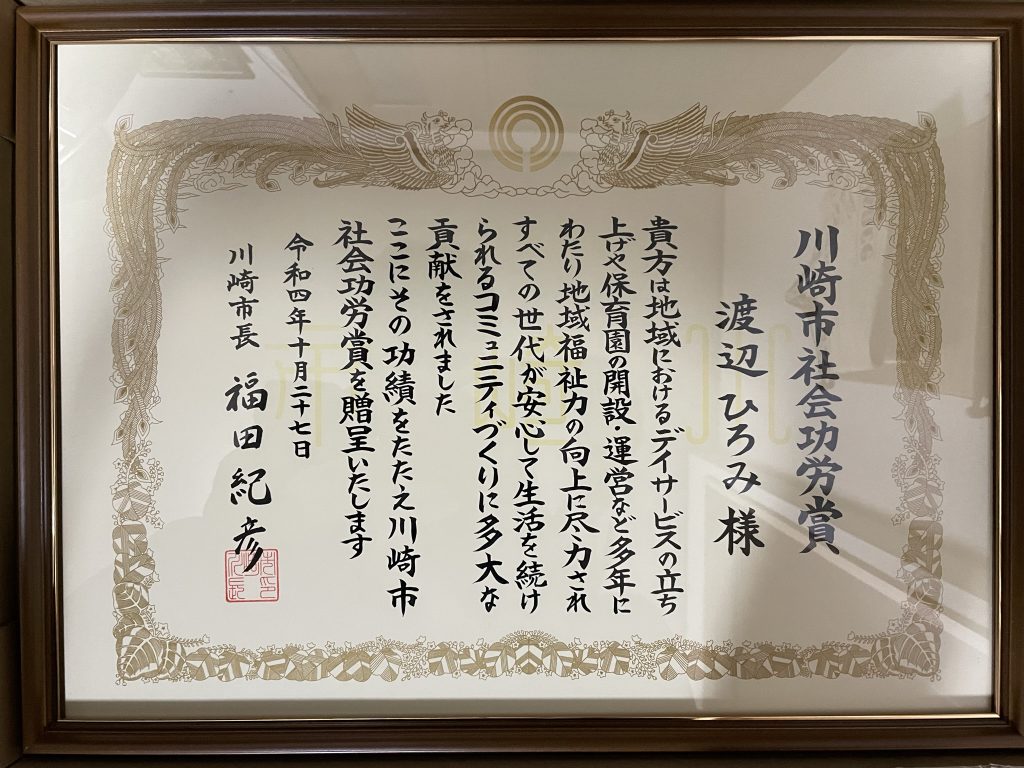 川崎市社会功労賞
渡辺 ひろみ 様
貴方は地域におけるデイサービスの立ち
上げや保育園の開設・運営など多年に
わたり地域福祉力の向上に尽力され
すべての世代が安心して生活を続け
られるコミュニティづくりに多大な
貢献をされました
ここにその功績をたたえ川崎市
社会功労賞を贈呈いたします
令和四年十月二十七日
川崎市長 福田紀彦